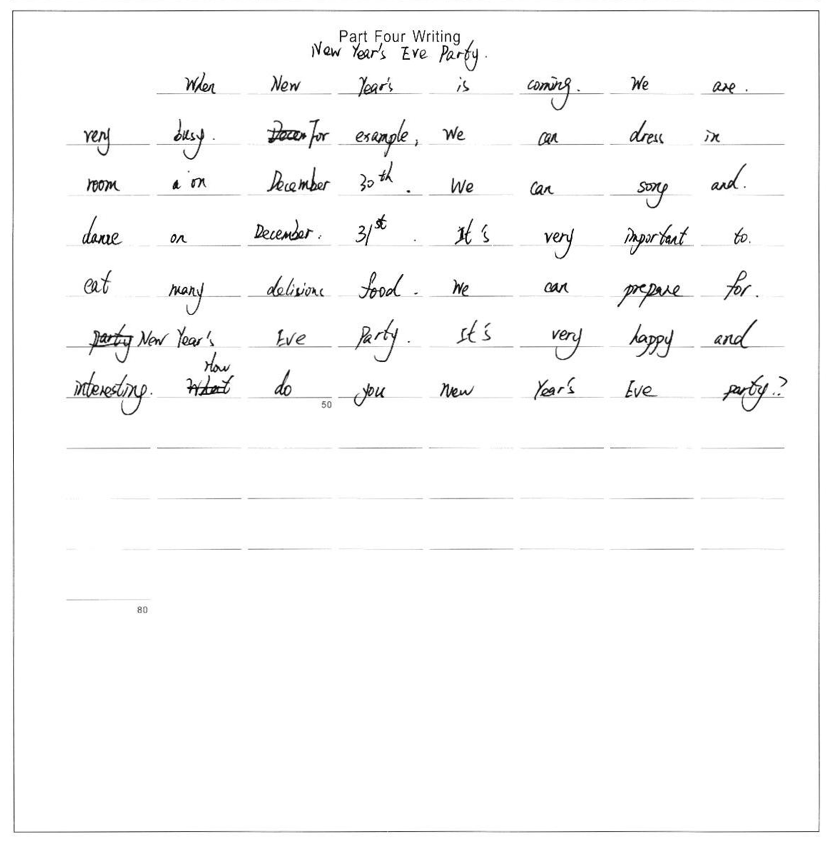 Part Four Writing
New Year's Eve Party.
When New Year's is coming. We are.
very busy. For example, We can dress in
room on December 30th. We can song and.
danse on December. 31st. It's very important to.
eat many delisious food. We can prepare for.
New Year's Eve Party. It's very happy and
How
interesting. do you New Year's Eve party?
50
80